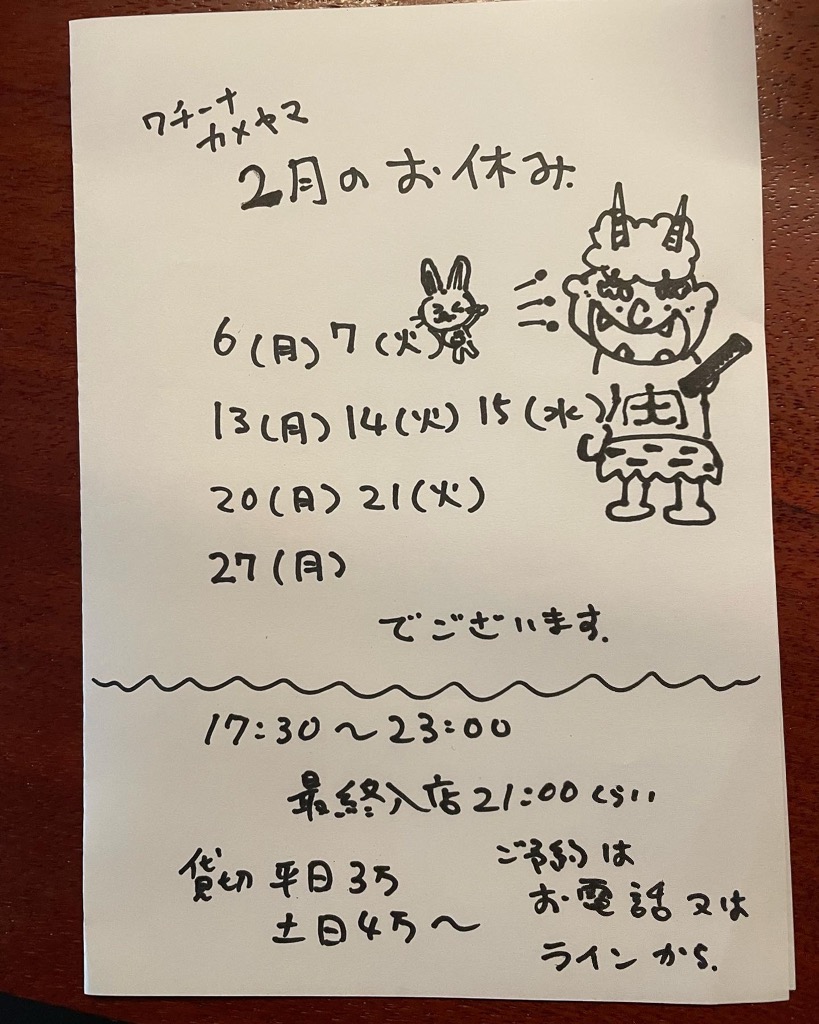 クチーナ
カメヤマ
2月のお休み.
6(月) 7(火)
13(月) 14(火) 15(水)
20(月) 21(火)
27(月)
でございます.
17:30〜23:00
最終入店21:00くらい
貸切 平日3万
土日4万〜
ご予約は
お電話又は
ラインから.